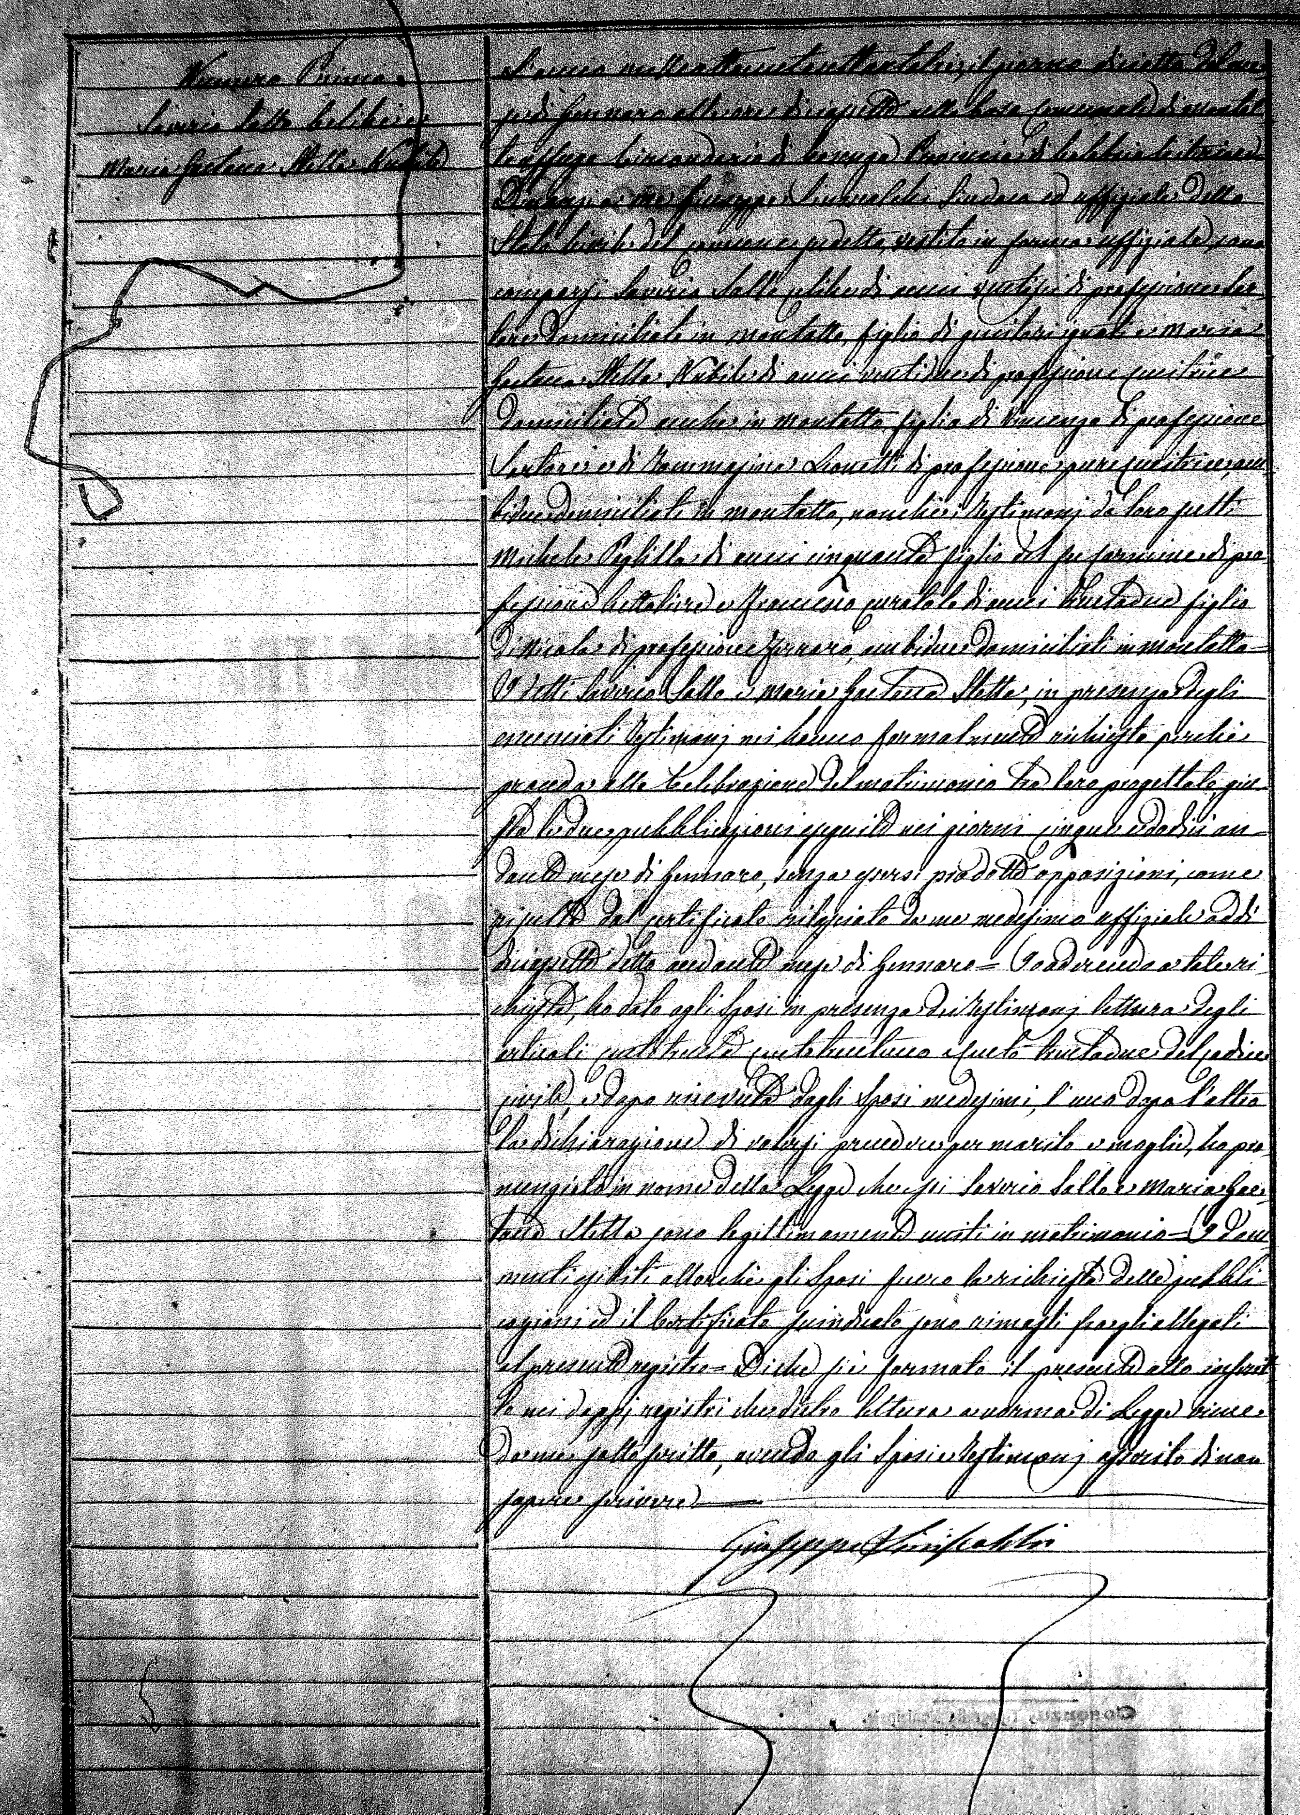 Numero Primo
Saverio Sallo Celibe e
Maria Gaetana Stella Nubile
L'anno milleottocento il giorno diciotto del me
se di Gennaro alle ore diciassette nella Casa Comunale di Montal
to Uffugo Circondario di Cosenza Provincia di Calabria Citeriore
Avanti a me Giuseppe Siniscalchi Sindaco ed uffiziale dello
Stato Civile del comune sudetto, vestito in forma uffiziale, sono
comparsi Saverio Sallo celibe di anni ventisei di professione
domiciliato in Montalto, figlio di genitori ignoti e Maria
Gaetana Stella Nubile di anni ventidue di professione cucitrice
domiciliata anche in Montalto, figlia di Vincenzo di professione
Sartore e di Tommasina Lionetti di professione pure cucitrice, am
bidue domiciliati in Montalto, nonchè i Testimonj da loro scelti
Michele di anni cinquanta figlio del fu Carmine di pro
fessione Bettoliere e Francesco di anni trentadue figlio
di Nicola di professione Ferraro, ambidue domiciliati in Montalto
I detti Saverio Sallo e Maria Gaetana Stella, in presenza degli
enunciati Testimonj mi hanno formalmente richiesto perchè
proceda alla Celebrazione del matrimonio tra loro progettato, giu
sta le due pubblicazioni eseguite nei giorni cinque e dodici an
dante mese di Gennaro, senza essersi prodotte opposizioni, come
risulta dal certificato rilasciato da me medesimo uffiziale addì
diciassette detto andante mese di Gennaro = Io aderendo a tale ri
chiesta, ho dato agli sposi in presenza dei Testimonj lettura degli
articoli centotrenta centotrentuno e centotrentadue del codice
civile, e dopo ricevuta dagli sposi medesimi, l'uno dopo l'altro
la dichiarazione di volersi prendere per marito e moglie, ho pro
nunziato in nome della Legge che essi Saverio Sallo e Maria Gae
tana Stella sono legittimamente uniti in matrimonio = I docu
menti esibiti allorchè gli sposi fecero la richiesta delle pubbli
cazioni ed il Certificato suindicato sono rimasti fra gli allegati
al presente registro = Di che si è formato il presente atto inserit
to nei doppj registri che dietro lettura a norma di Legge viene
da me sottoscritto, avendo gli Sposi e Testimonj asserito di non
sapere scrivere
Giuseppe Siniscalchi